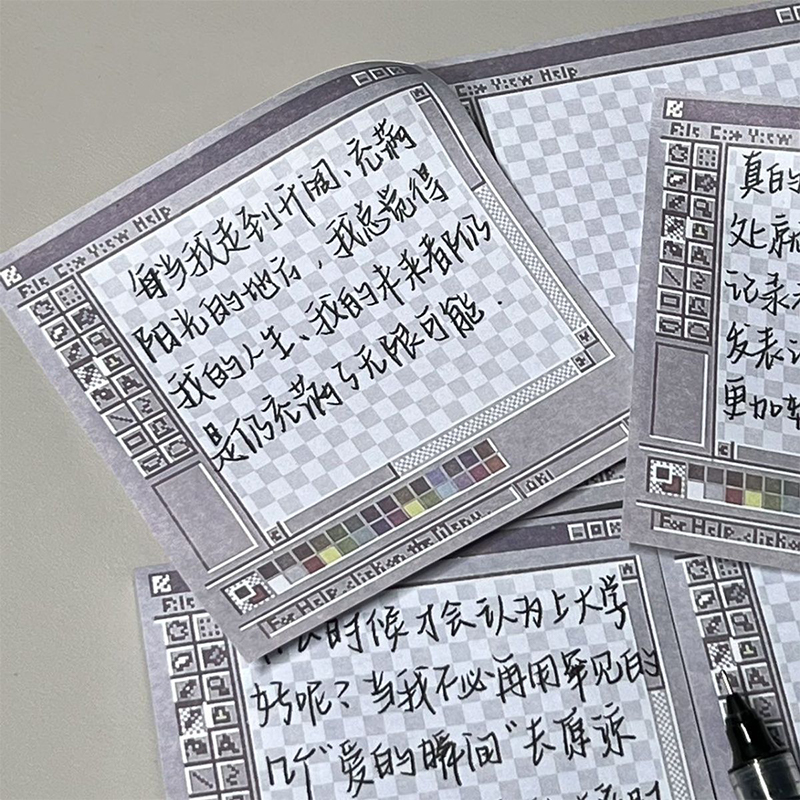 File Edit View Help
每当我走到开阔、充满
阳光的地方，我总觉得
我的人生、我的未来都仍
是仍充满了无限可能.
For Help, click on the Menu.
View Help
File Edit View
真的
记录
发表
更加
For Help, click on
File
时候才会认为上大学
好呢？当我不必再用罕见的
几个“爱的瞬间”去原谅